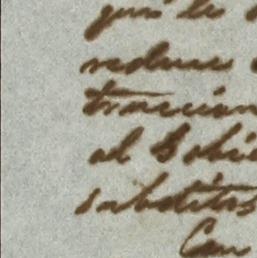 que le
reduce
traccion
al Gobie
subditos
Con